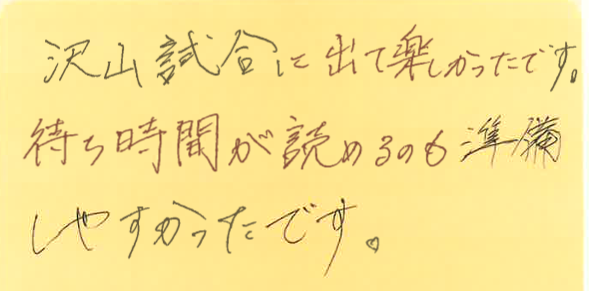 沢山試合に出て楽しかったです。
待ち時間が読めるのも準備
しやすかったです。